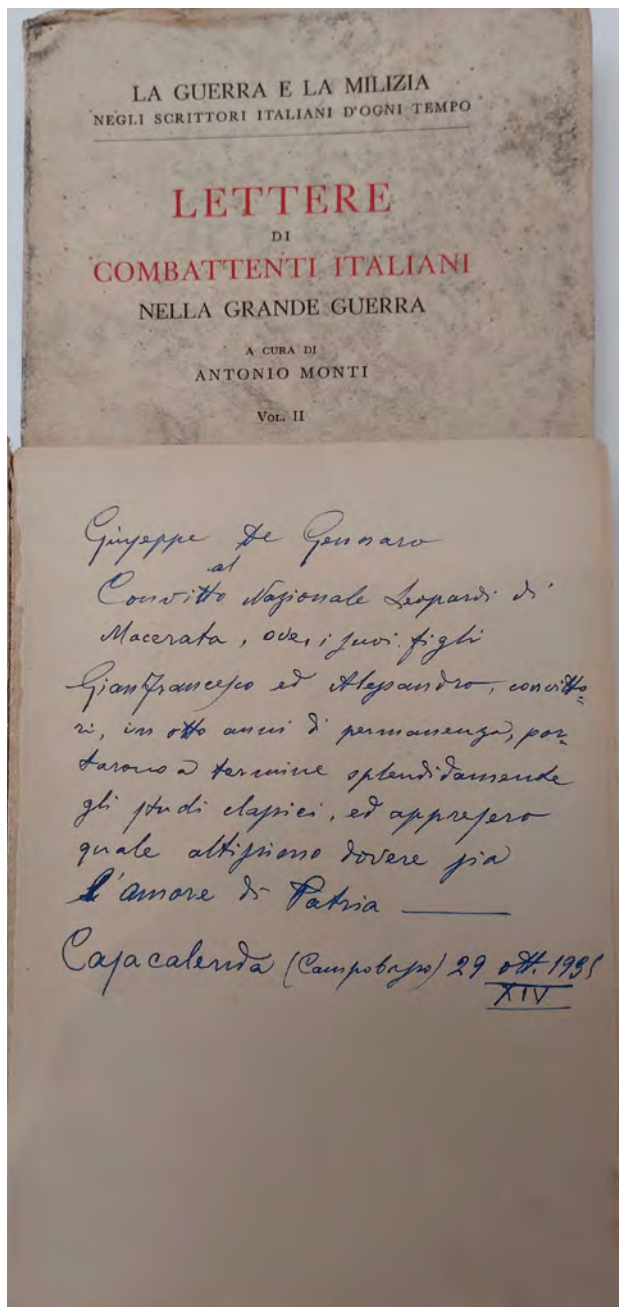 LA GUERRA E LA MILIZIA
NEGLI SCRITTORI ITALIANI D'OGNI TEMPO
LETTERE
DI
COMBATTENTI ITALIANI
NELLA GRANDE GUERRA
A CURA DI
ANTONIO MONTI
VOL. II
Giuseppe De Gennaro
al
Convitto Nazionale Leopardi di
Macerata, ove, i suoi figli
Gianfrancesco ed Alessandro, convitto=
ri, in otto anni di permanenza, por=
tarono a termine splendidamente
gli studi classici, ed appresero
quale altissimo dovere sia
l'amore di Patria
Casacalenda (Campobasso) 29 ott. 1935
XIV